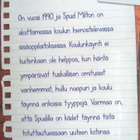 On vuosi 1990 ja Spud Milton on
aloittamassa koulun hienostelevassa
sisäoppilaitoksessa. Koulunkäynti ei
kuitenkaan ole helppoa, kun häntä
ympäröivät tuskallisen omituiset
vanhemmat, hullu naapuri ja koulu
täynnä erikoisia tyyppejä. Varmaa on,
että Spudilla on kädet täynnä töitä
totuttautuessaan uuteen kotiinsa